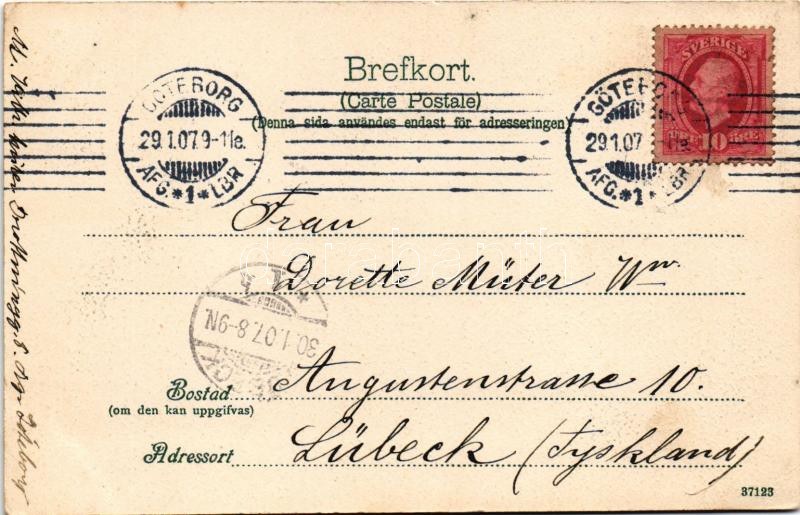 Brefkort.
(Carte Postale)
(Denna sida användes endast för adresseringen)
SVERIGE
10
GÖTEBORG
29.1.07.9-11e.
AFG. *1* LBR
GÖTEBO
29.1.07
AFG. *1* LBR
Frau
Dorette Müter Ww.
30.1.07.8-9N.
Bostad
(om den kan uppgifvas)
Augustenstrasse 10.
Adressort
Lübeck (Tyskland)
37123
Göteborg